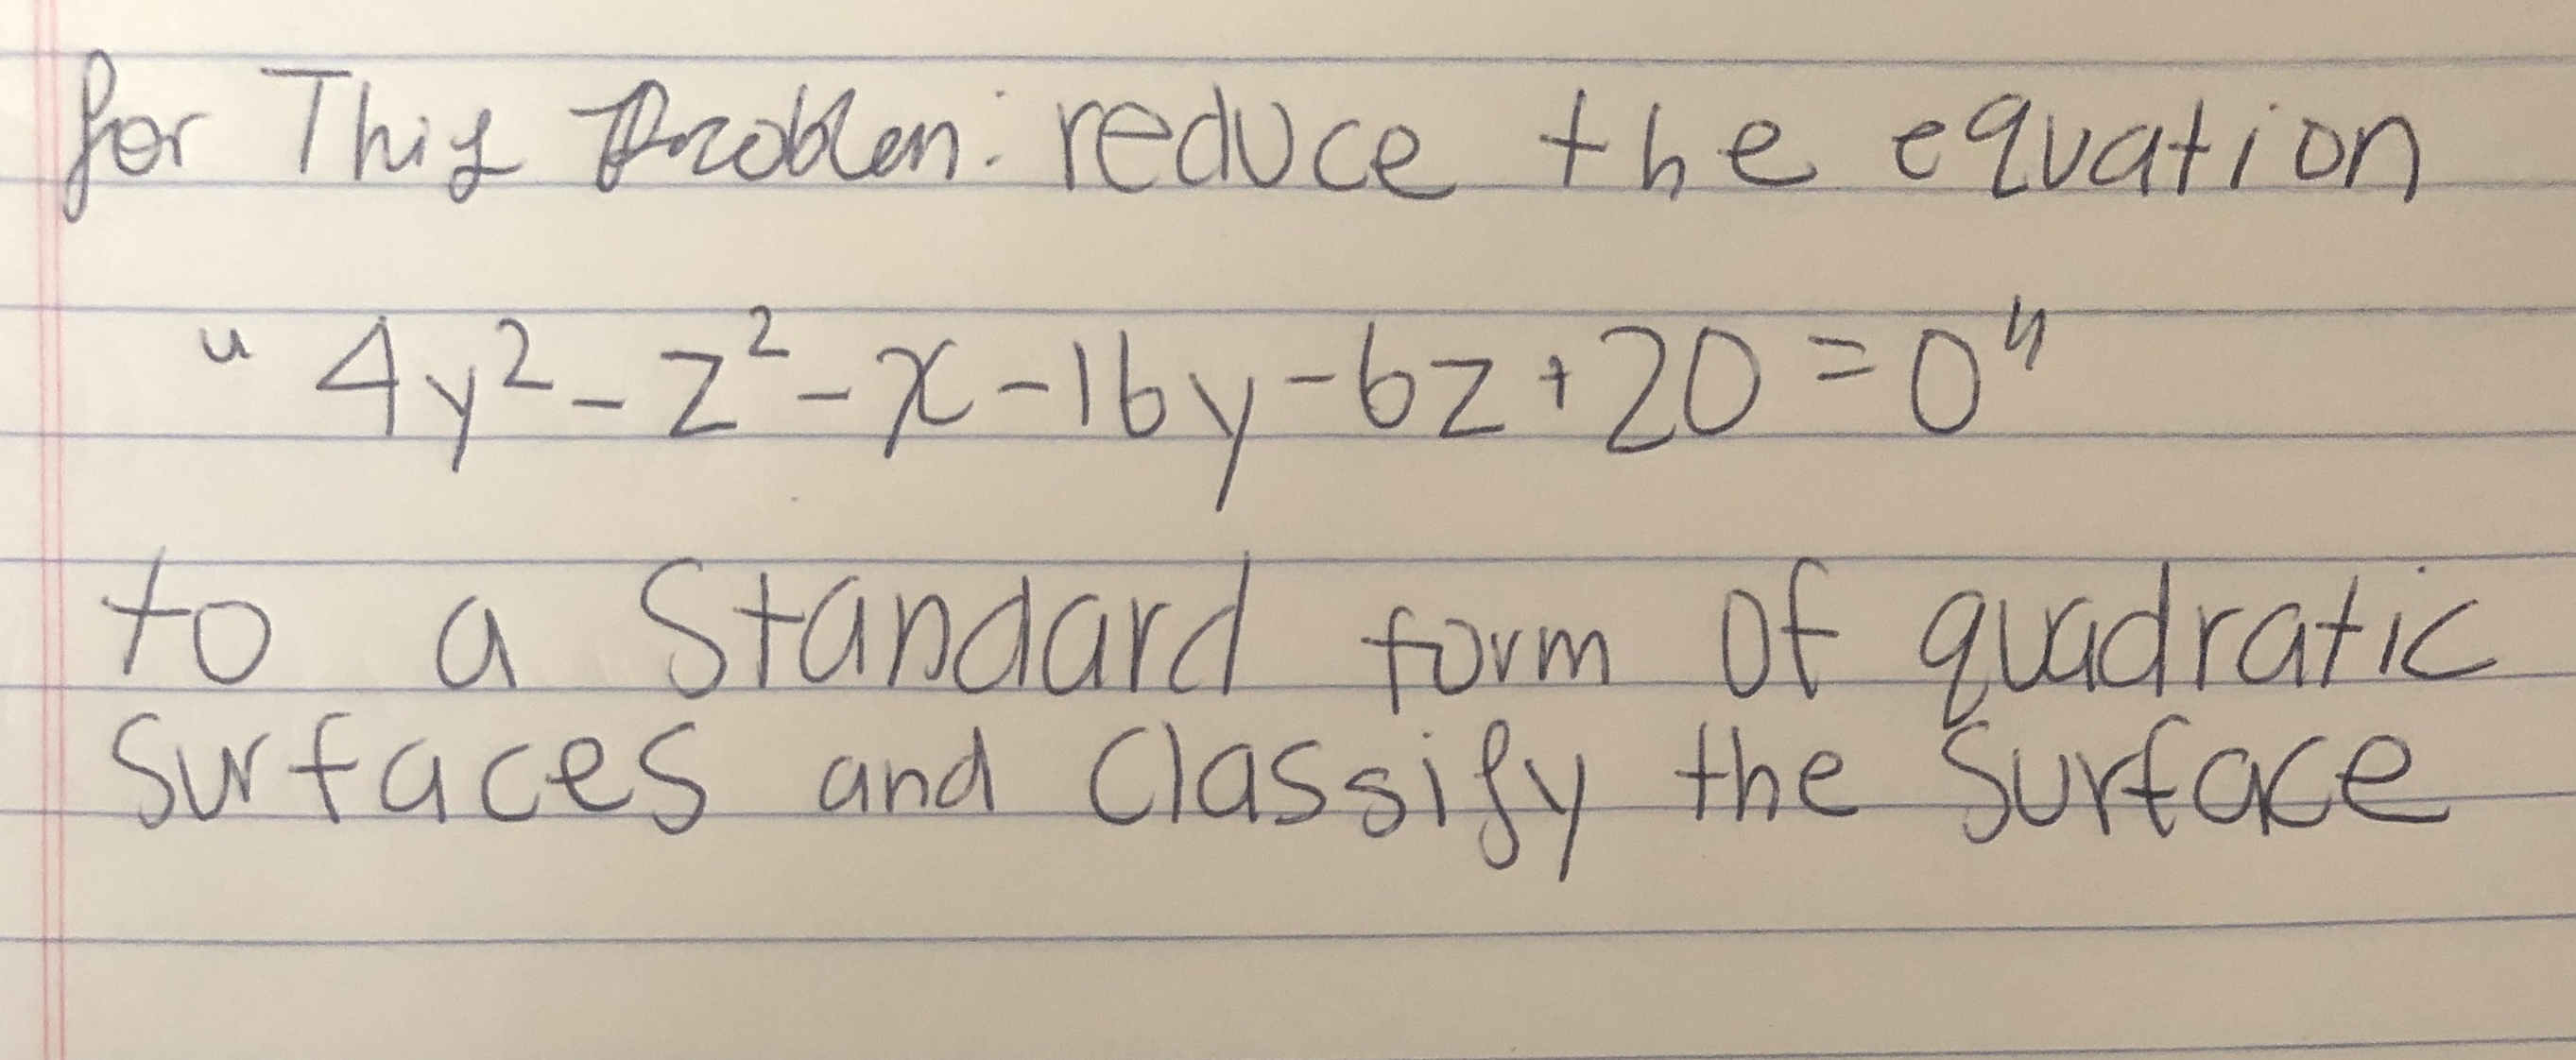 for This Problem: reduce the equation
" 4y² - z² - x - 16y - 6z + 20 = 0"
to a Standard form of quadratic
Surfaces and Classify the Surface